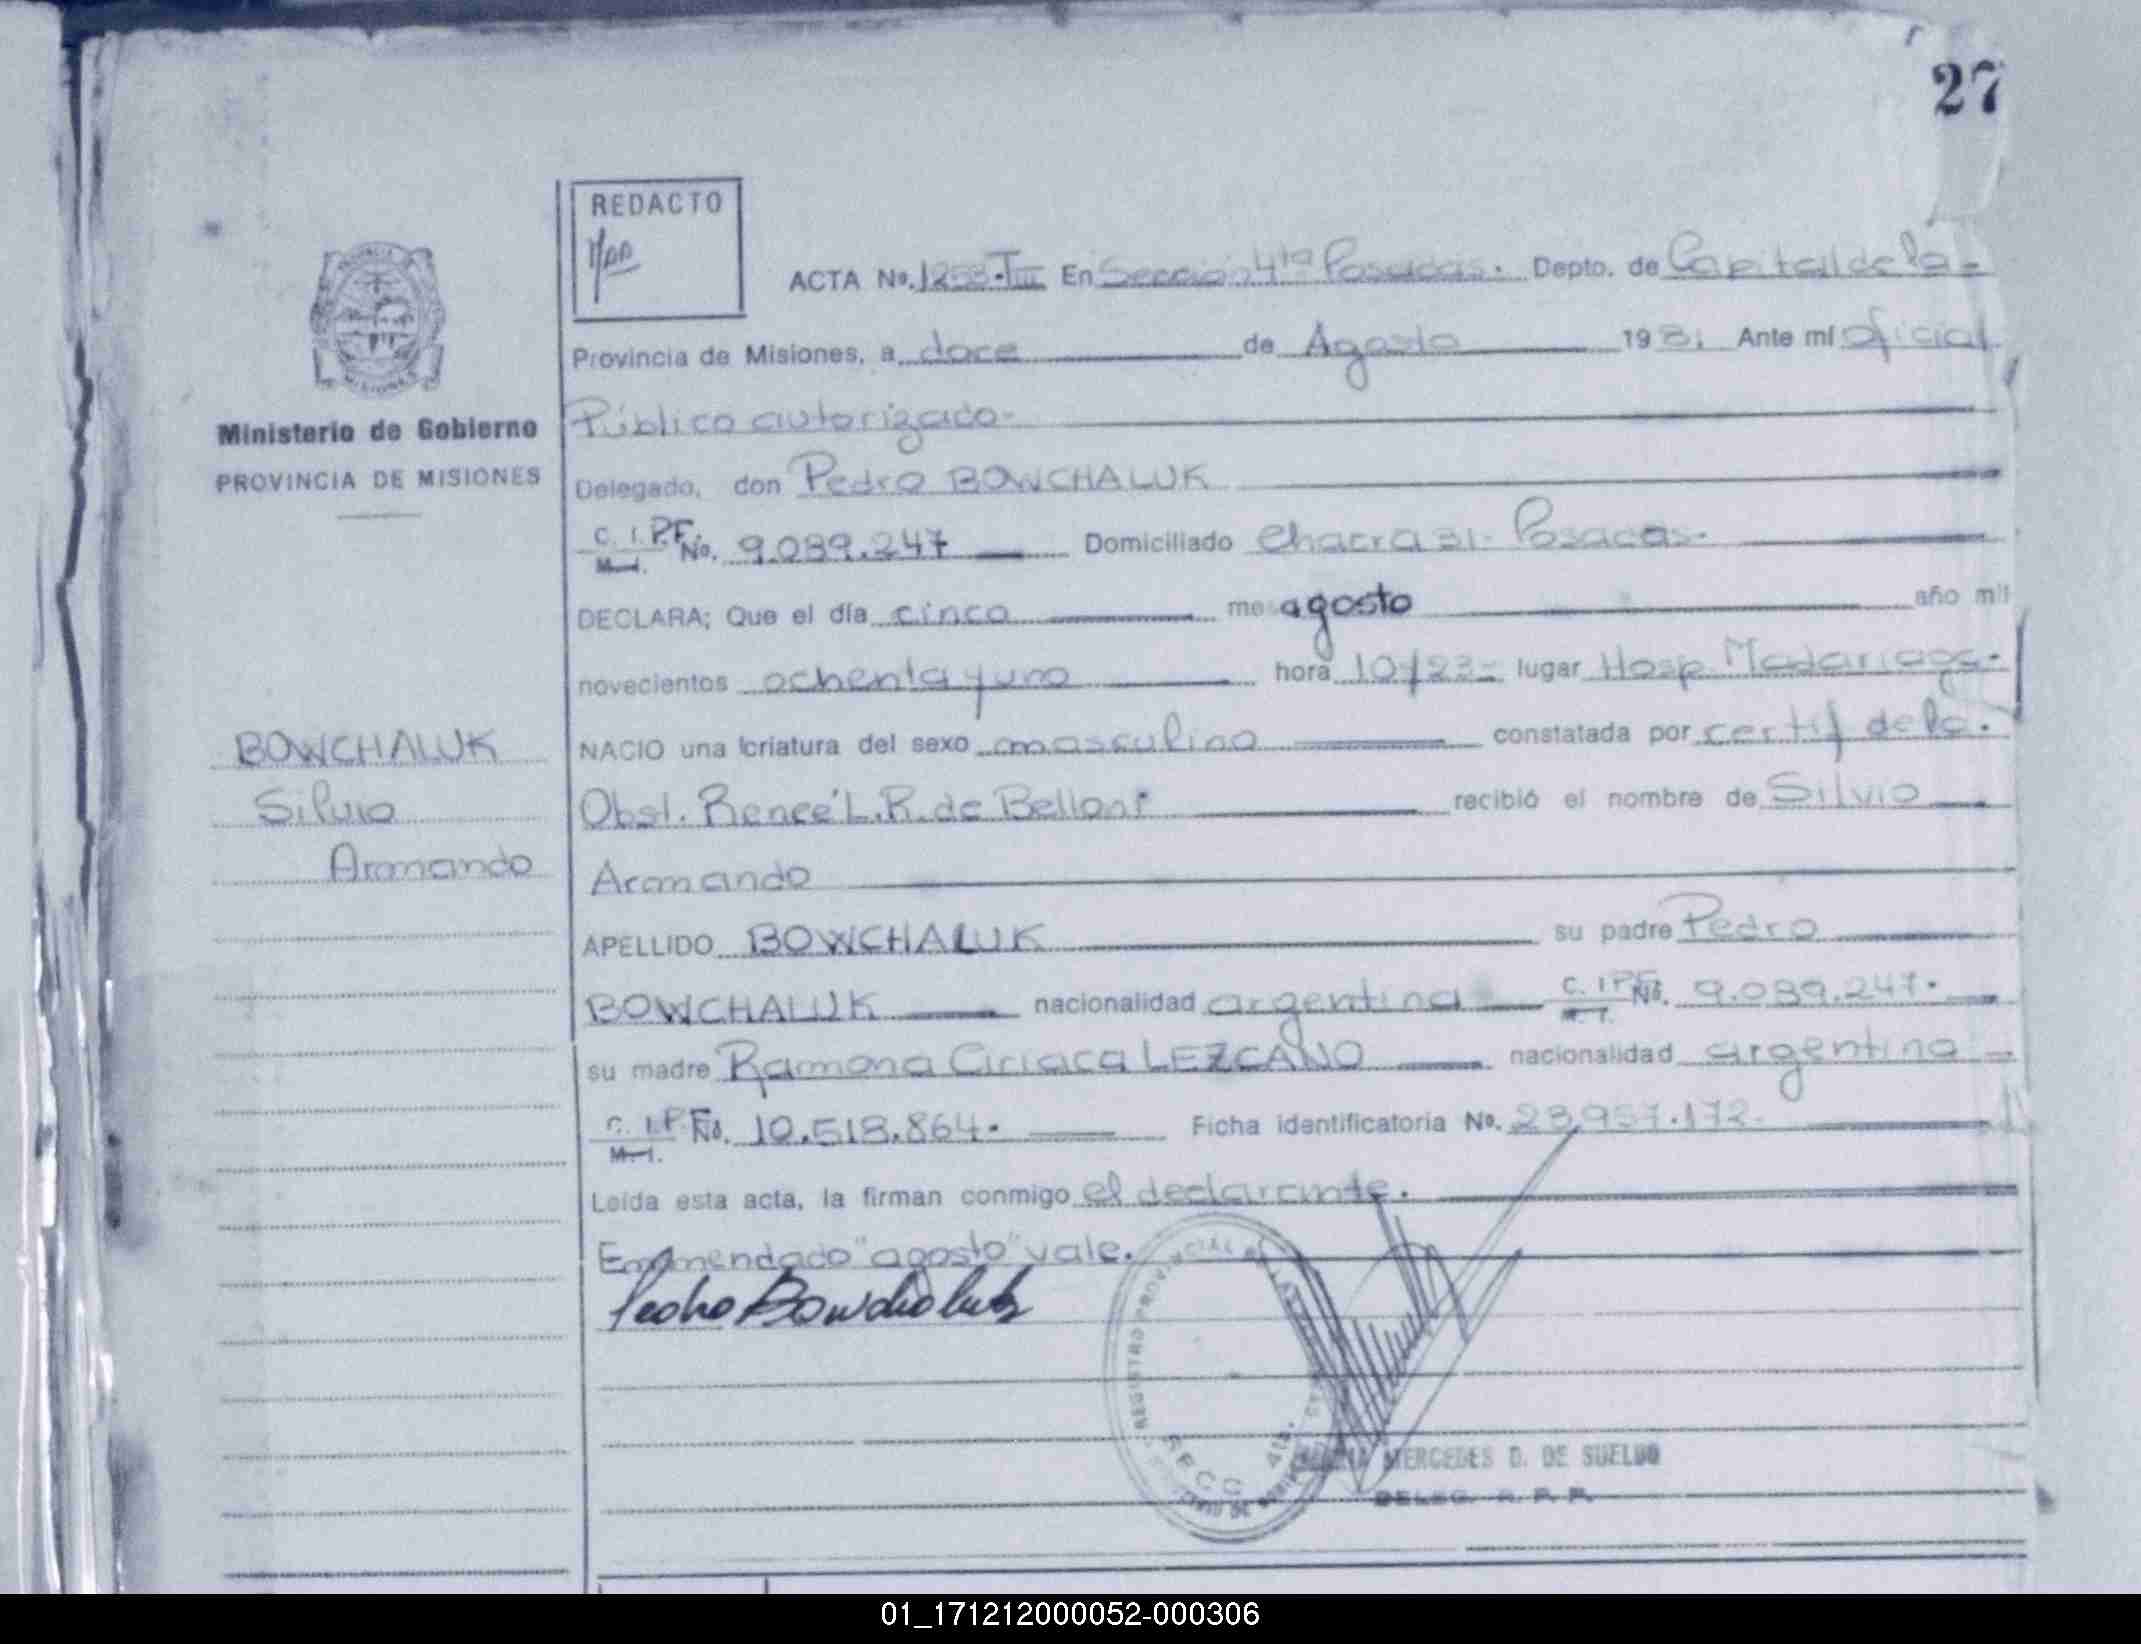 27
REDACTO
ACTA No. 1258-TIII En Sección 4ta Posadas. Depto. de Capital de la-
Provincia de Misiones, a doce de Agosto 1981 Ante mí Oficial
Público autorizado-
Ministerio de Gobierno
PROVINCIA DE MISIONES
Delegado, don Pedro BOWCHALUK
C. I. P.F. No. 9.089.247 Domiciliado Chacra 31- Posadas.
M.I.
DECLARA; Que el día cinco mes agosto año mil
novecientos ochenta y uno hora 10/23- lugar Hosp. Madariaga-
BOWCHALUK
Silvio
Armando
NACIO una criatura del sexo masculino constatada por certif de la.
Obst. Reneé L.R. de Belloni recibió el nombre de Silvio
Armando
APELLIDO BOWCHALUK su padre Pedro
BOWCHALUK nacionalidad argentina C. I. P.F. No. 9.089.247.
M. I.
su madre Ramona Ciriaca LEZCANO nacionalidad argentina
C. I. P.F. No. 10.518.864. Ficha identificatoria No. 28.957.172.
M.I.
Leída esta acta, la firman conmigo el declarante.
Enmendado "agosto" vale.
Pedro Bowchaluk
REGISTRO PROVINCIAL DE LAS
SECC. 4ta.
MERCEDES D. DE SUELDO
DELEG. R. P. P.
01_171212000052-000306